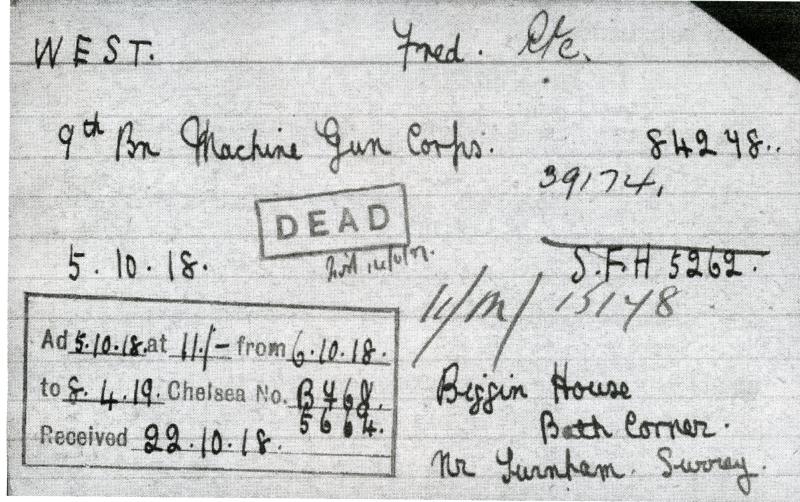 WEST. Fred. Pte.
9th Bn Machine Gun Corps. 84248..
39174,
DEAD
5.10.18. S.F.H 5262.
11/M/ 15148
Ad 5.10.18. at 11/- from 6.10.18.
to 8.4.19. Chelsea No. B468.
5664.
Received 22.10.18.
Biggin House
Bath Corner.
Nr Farnham. Surrey.